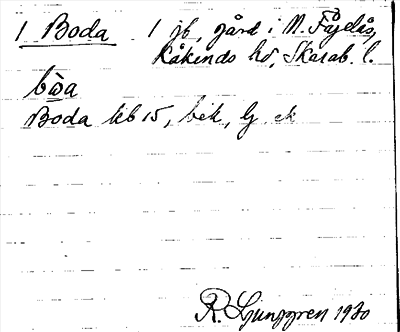 1 Boda 1 jb, gård i N. Fågelås,
Kåkinds hd, Skarab. l.
bὼa
Boda kb 15, bek, Lj. ek
R. Ljunggren 1930